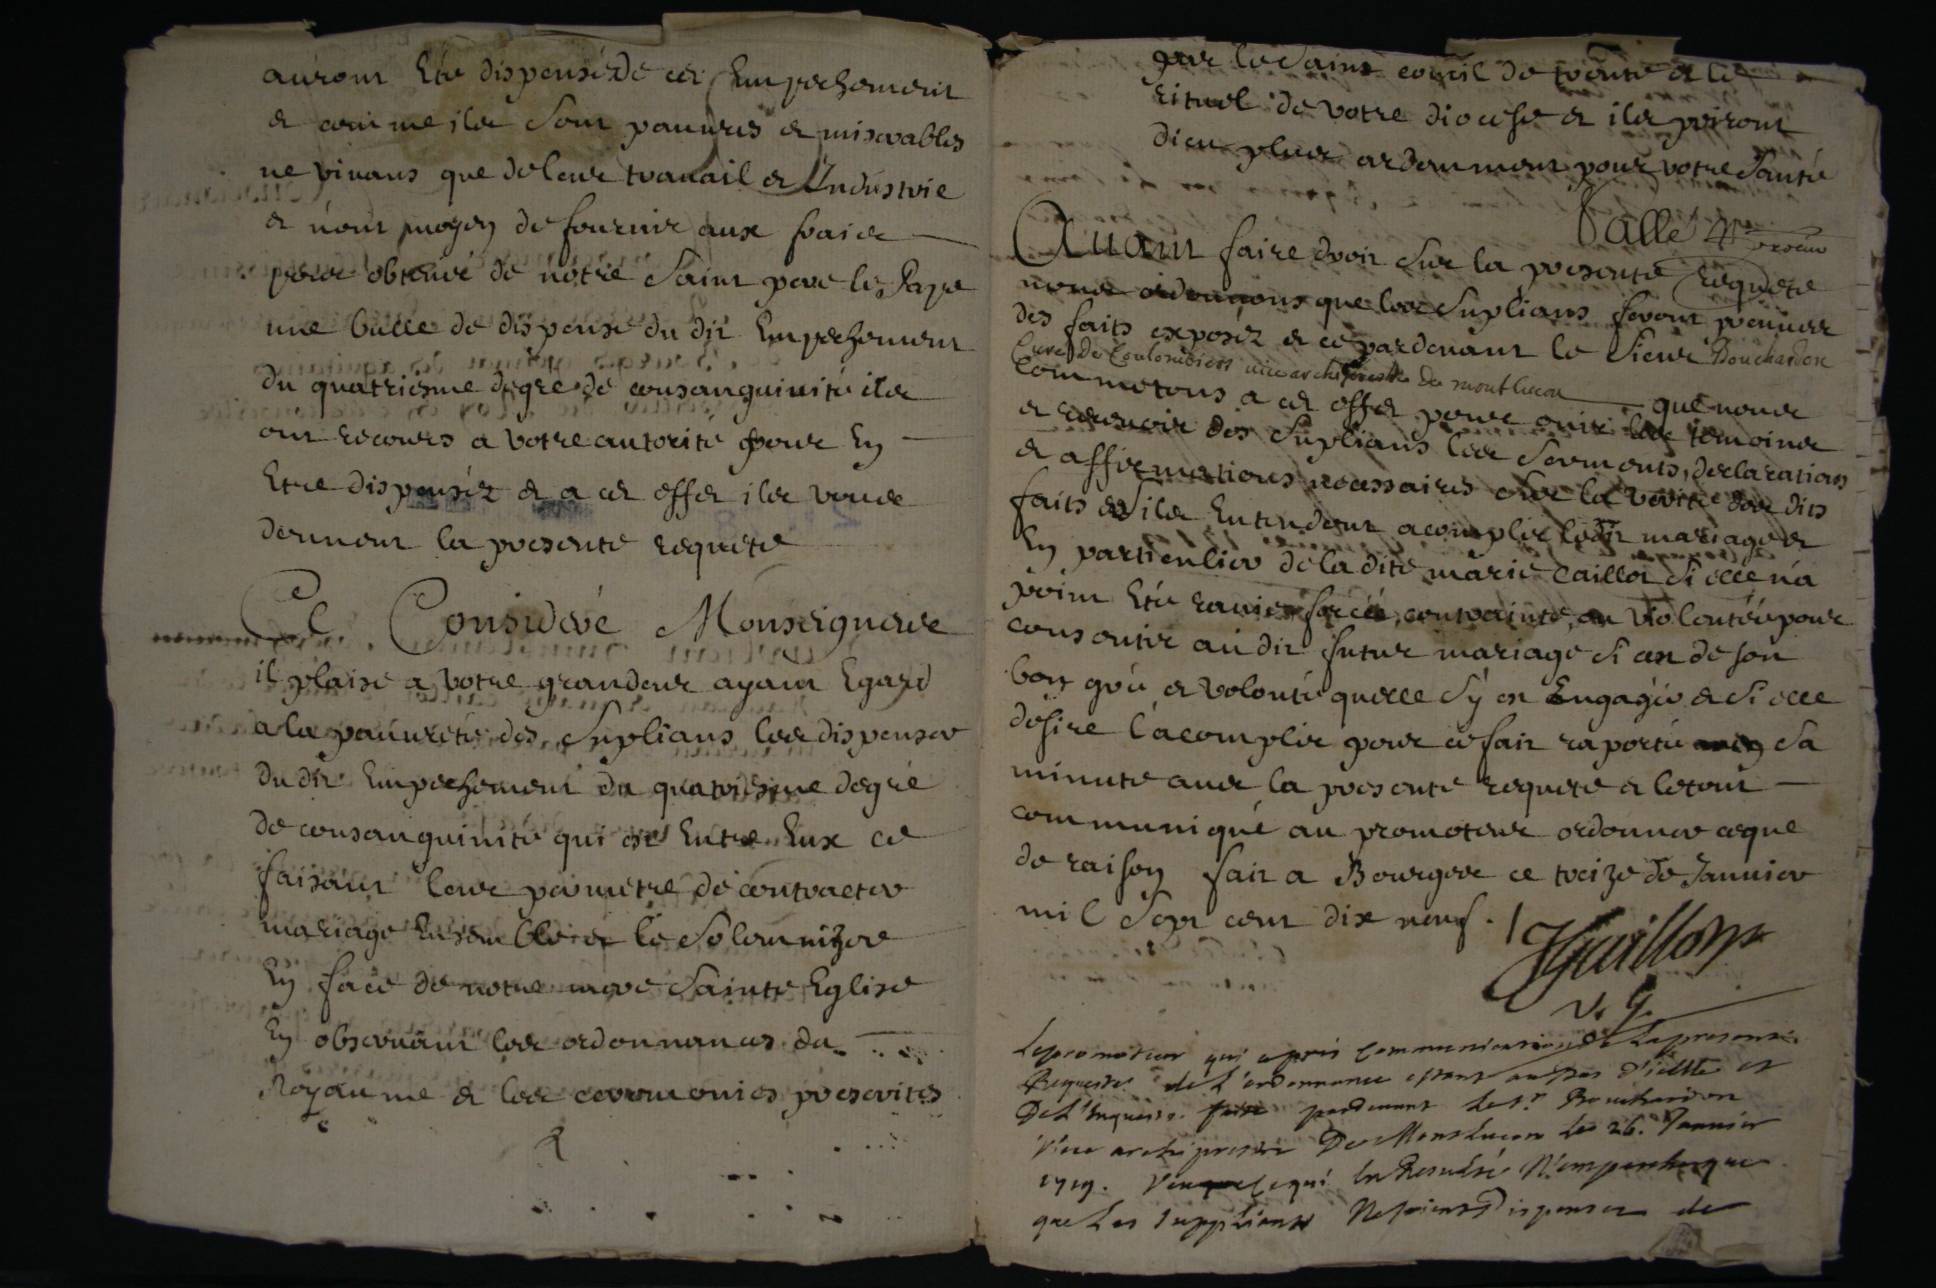 auront Eté dispensez de cet Empechement
et comme ils Sont pauvres et miserables
ne vivans que de leur travail et Industrie
et n'ont moyen de fournir aux frais
pour obtenir de notre Saint pere le Pape
une bulle de dispense du dit Empechement
du quatriesme degre de consanguinité ils
ont recours a votre autorité pour En
Etre dispensez et a cet effet ils vous
donnent la presente requete
Ce Consideré Monseigneur
il plaise a votre grandeur ayant Egard
a la pauvreté des Suplians les dispenser
du dit Empechement du quatriesme degré
de consanguinité qui est Entre Eux ce
faisant leur permetre de contracter
mariage Ensemble et le Solemnizer
En face de notre mere Sainte Eglise
En observant les ordonnances du
Royaume et les ceremonies prescrites
par le Saint concil de trente et le
rituel de votre diocese et ils priront
dieu plus ardemment pour votre Santé
Vallé
Avant faire droit Sur la presente Requete
nous ordonnons que les Suplians feront preuve
des faits exposéz et ce pardevant le Sieur Bouchardon
Curé de Coulombiers vice archiprestre de montlucon que nous
Commetons a cet effet pour ouir les temoins
et recevoir des Suplians les Serments, declarations
et affirmations necessaires Sur la verité des dits
faits et S'ils Entendent acomplir ledit mariage et
En particulier de la dite marie Caillot Si elle n'a
point Eté ravie forcée, contrainte, ou violentée pour
consentir au dit futur mariage Si c'est de son
bon gré et volonté quelle S'y est Engagée et Si elle
desire l'acomplir pour ce fait raporté Sa
minute avec la presente requete et letout
communiqué au promoteur ordonner ceque
de raison fait a Bourges ce treize de Janvier
mil Sept cent dix neuf.
JGuillon
v. g.
Le promoteur qui a pris communication de La presente
Requeste de L'ordonnance estant au bas d'icelle et
De L'enqueste faite pardevant le Sr Bouchardon
Vice archiprestre De Montlucon le 26. Janvier
1719. Veu ce qui En Resulte N'empesche
que Les Supplians Ne soient Dispensez de